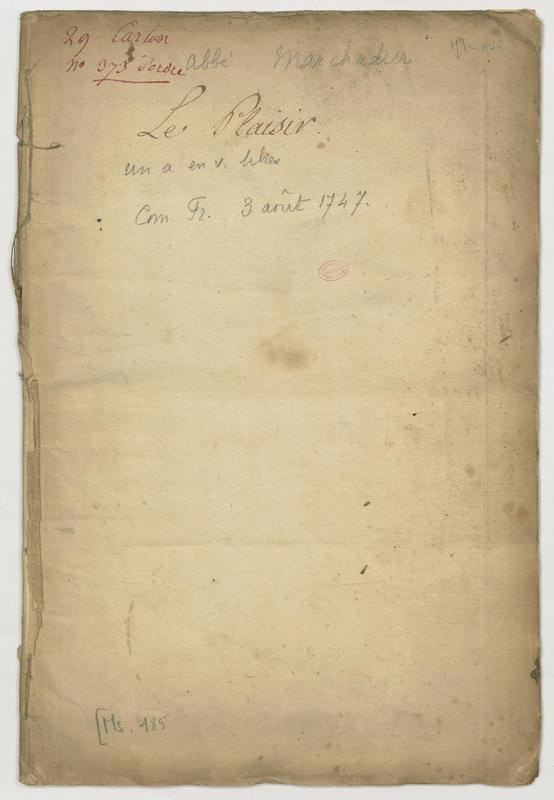 29 Carton
n° 373 d'ordre
abbé Marchadier
Le Plaisir.
un a en v. libres
Com. Fr. 3 août 1747.
[Ms. 185